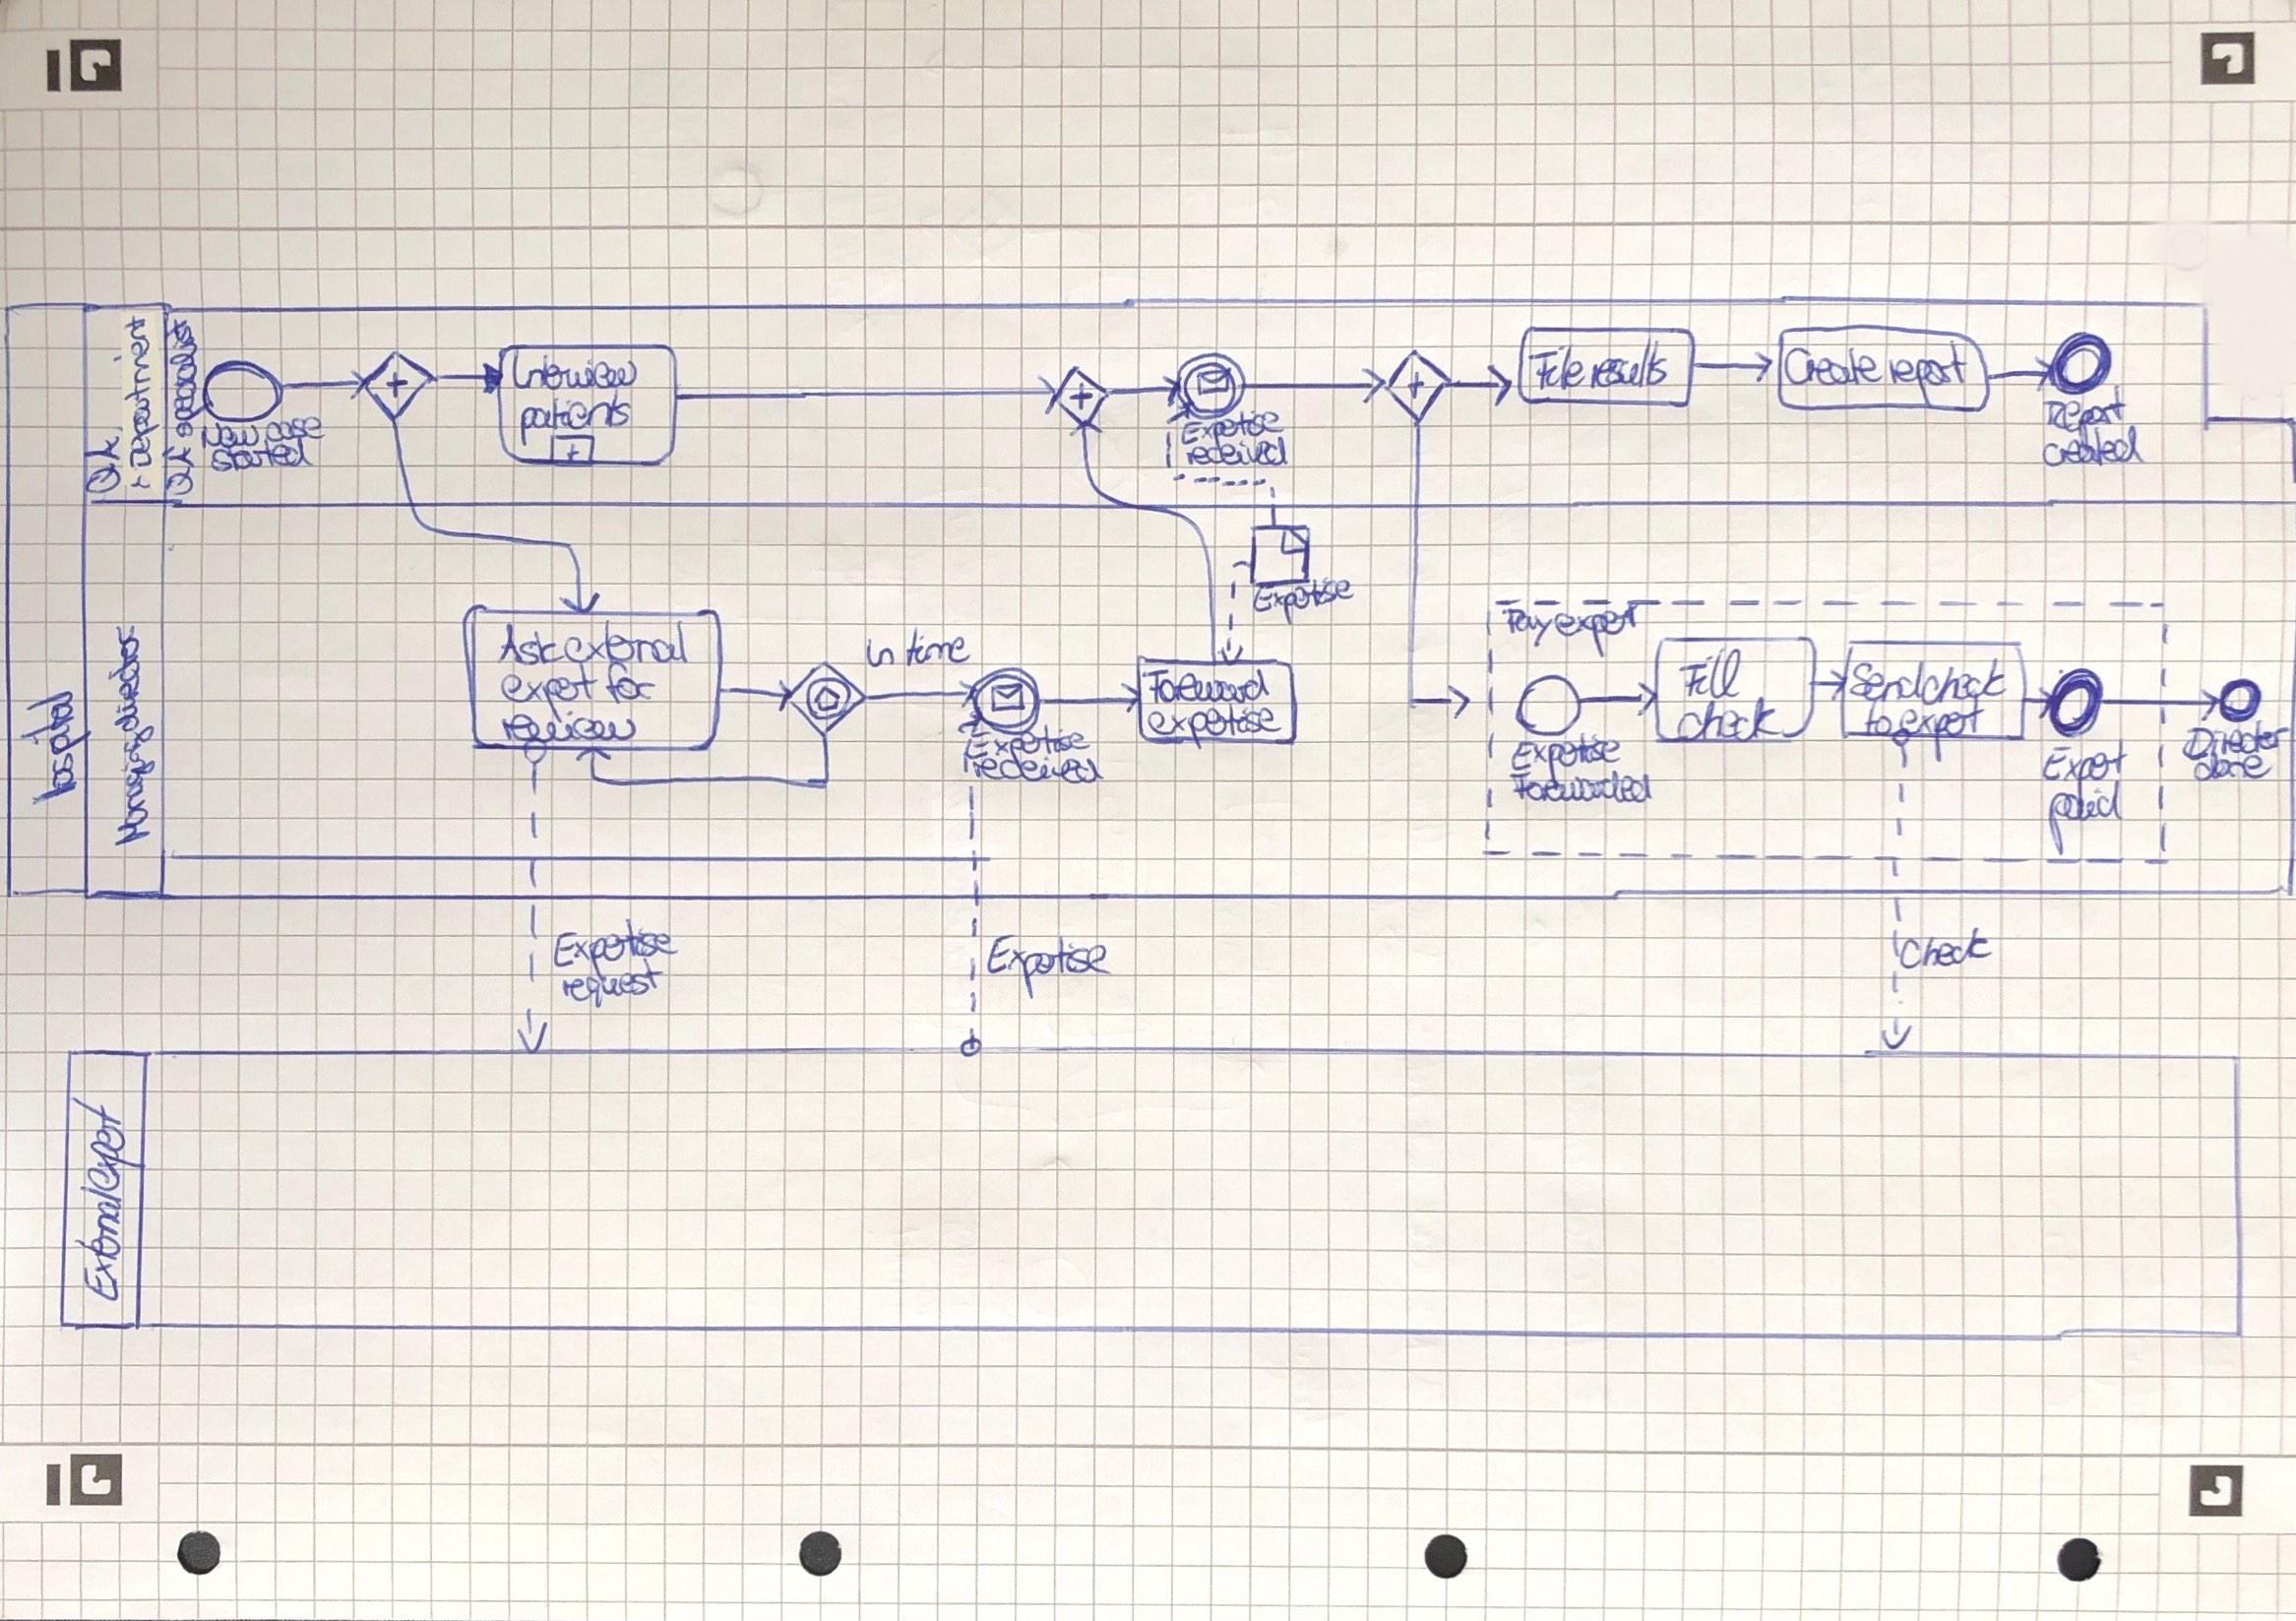 Hospital
QA
Department
QA specialist
New case
started
Interview
patients
Expertise
received
File results
Create report
Report
created
Managing director
Ask external
expert for
review
in time
Expertise
received
Forward
expertise
Expertise
Pay expert
Expertise
Forwarded
Fill
check
Send check
to expert
Expert
paid
Director
done
Expertise
request
Expertise
Check
External expert